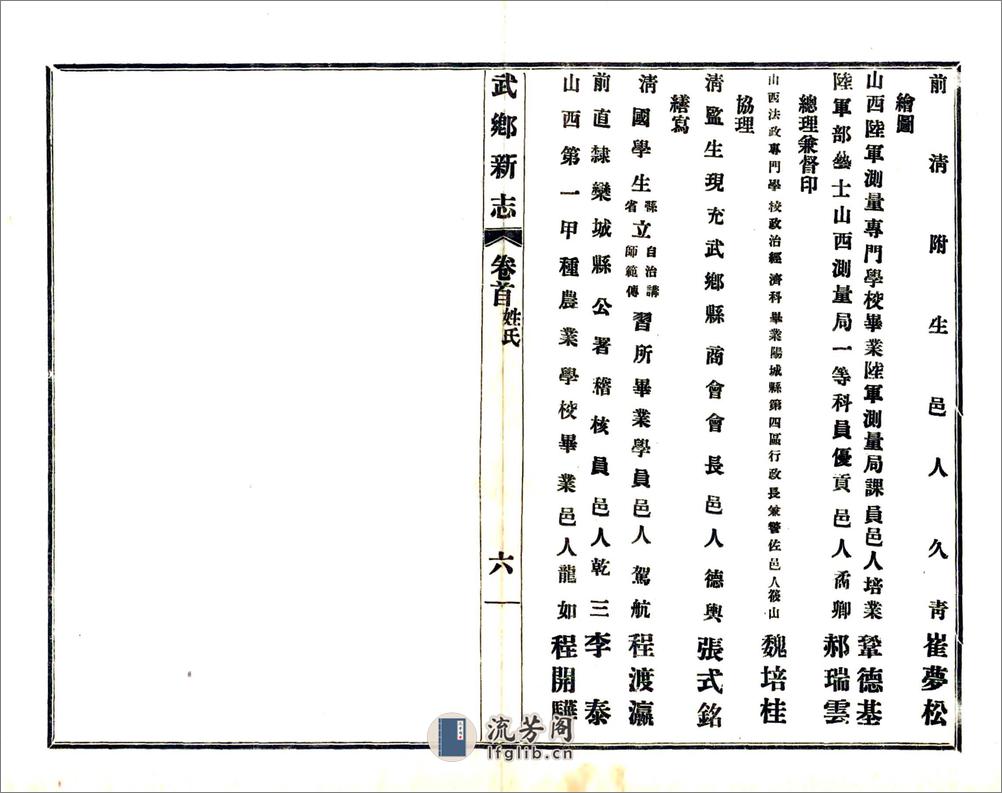 前清附生邑人久青崔夢松
繪圖
山西陸軍測量專門學校畢業陸軍測量局課員邑人培業鞏德基
陸軍部藝士山西測量局一等科員優貢邑人矞卿郝瑞雲
總理兼督印
山西法政專門學校政治經濟科畢業陽城縣第四區行政長兼警佐邑人筱山魏培桂
協理
淸監生現充武鄉縣商會會長邑人德輿張式銘
繕寫
淸國學生縣省立自治講師範傳習所畢業學員邑人駕航程渡瀛
前直隸欒城縣公署稽核員邑人乾三李泰
山西第一甲種農業學校畢業邑人龍如程開驊
武鄉新志 卷首 姓氏 六
流芳阁
lfglib.cn